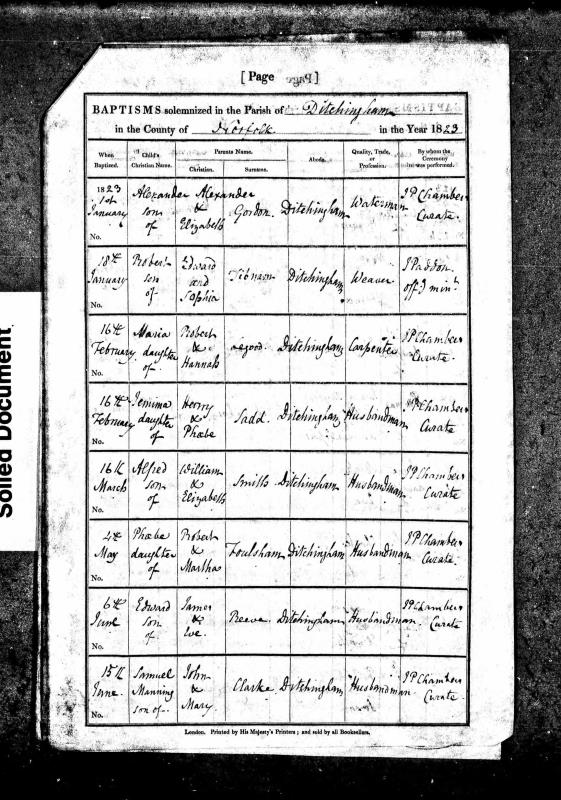 [ Page ]
BAPTISMS solemnized in the Parish of Ditchingham
in the County of Norfolk in the Year 1823
When Baptized. Child's Christian Name. Parents Name. Christian. Surname. Abode. Quality, Trade, or Profession. By whom the Ceremony was performed.
1823 1st January No. Alexander son of Alexander & Elizabeth Gordon. Ditchingham Waterman J P Chambers Curate.
18th January No. Robert son of Edward and Sophia Ditchingham Weaver J Paddon off g minr
16th February No. Maria daughter of Robert & Hannah Ditchingham Carpenter J P Chambers Curate.
16th February No. Jemima daughter of Henry & Phœbe Sadd. Ditchingham Husbandman J P Chambers Curate
16th March No. Alfred son of William & Elizabeth Smith Ditchingham Husbandman J P Chambers Curate
4th May No. Phœbe daughter of Robert & Martha Foulsham Ditchingham Husbandman J P Chambers Curate.
6th June No. Edward son of James & Eve. Reeve Ditchingham Husbandman. J P Chambers Curate
15th June. No. Samuel Manning son of John & Mary. Clarke Ditchingham Husbandman J P Chambers Curate.
London. Printed by His Majesty's Printers; and sold by all Booksellers.
Soiled Document